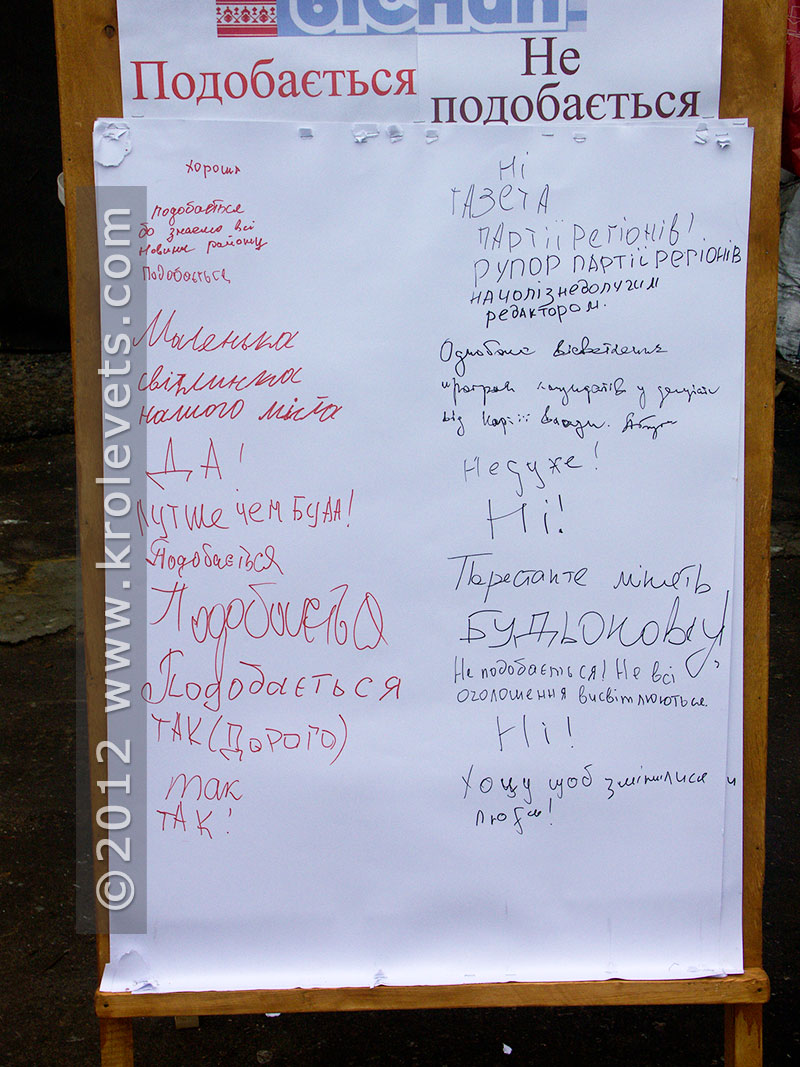 ВІСНИК
Подобається
Не
подобається
хороша
подобається
бо знаємо всі
новини району
Подобається
Маленька
світлинка
нашого міста
ДА!
лутше чем БУЛА!
Подобається
Подобається
Подобається
ТАК (Дорого)
так
ТАК!
Ні
ГАЗЕТА
ПАРТІЇ РЕГІОНІВ!
РУПОР ПАРТІЇ РЕГІОНІВ
НАЧОЛІ З НЕДОЛУГИМ
РЕДАКТОРОМ.
Однобоке висвітлення
програм кандидатів у депутати
від Партії влади.
Не дуже!
Ні!
Перестаньте
Не подобається! Не всі
оголошення висвітлюються.
Ні!
Хочу щоб змінилися и
люди!
©2012 www.krolevets.com